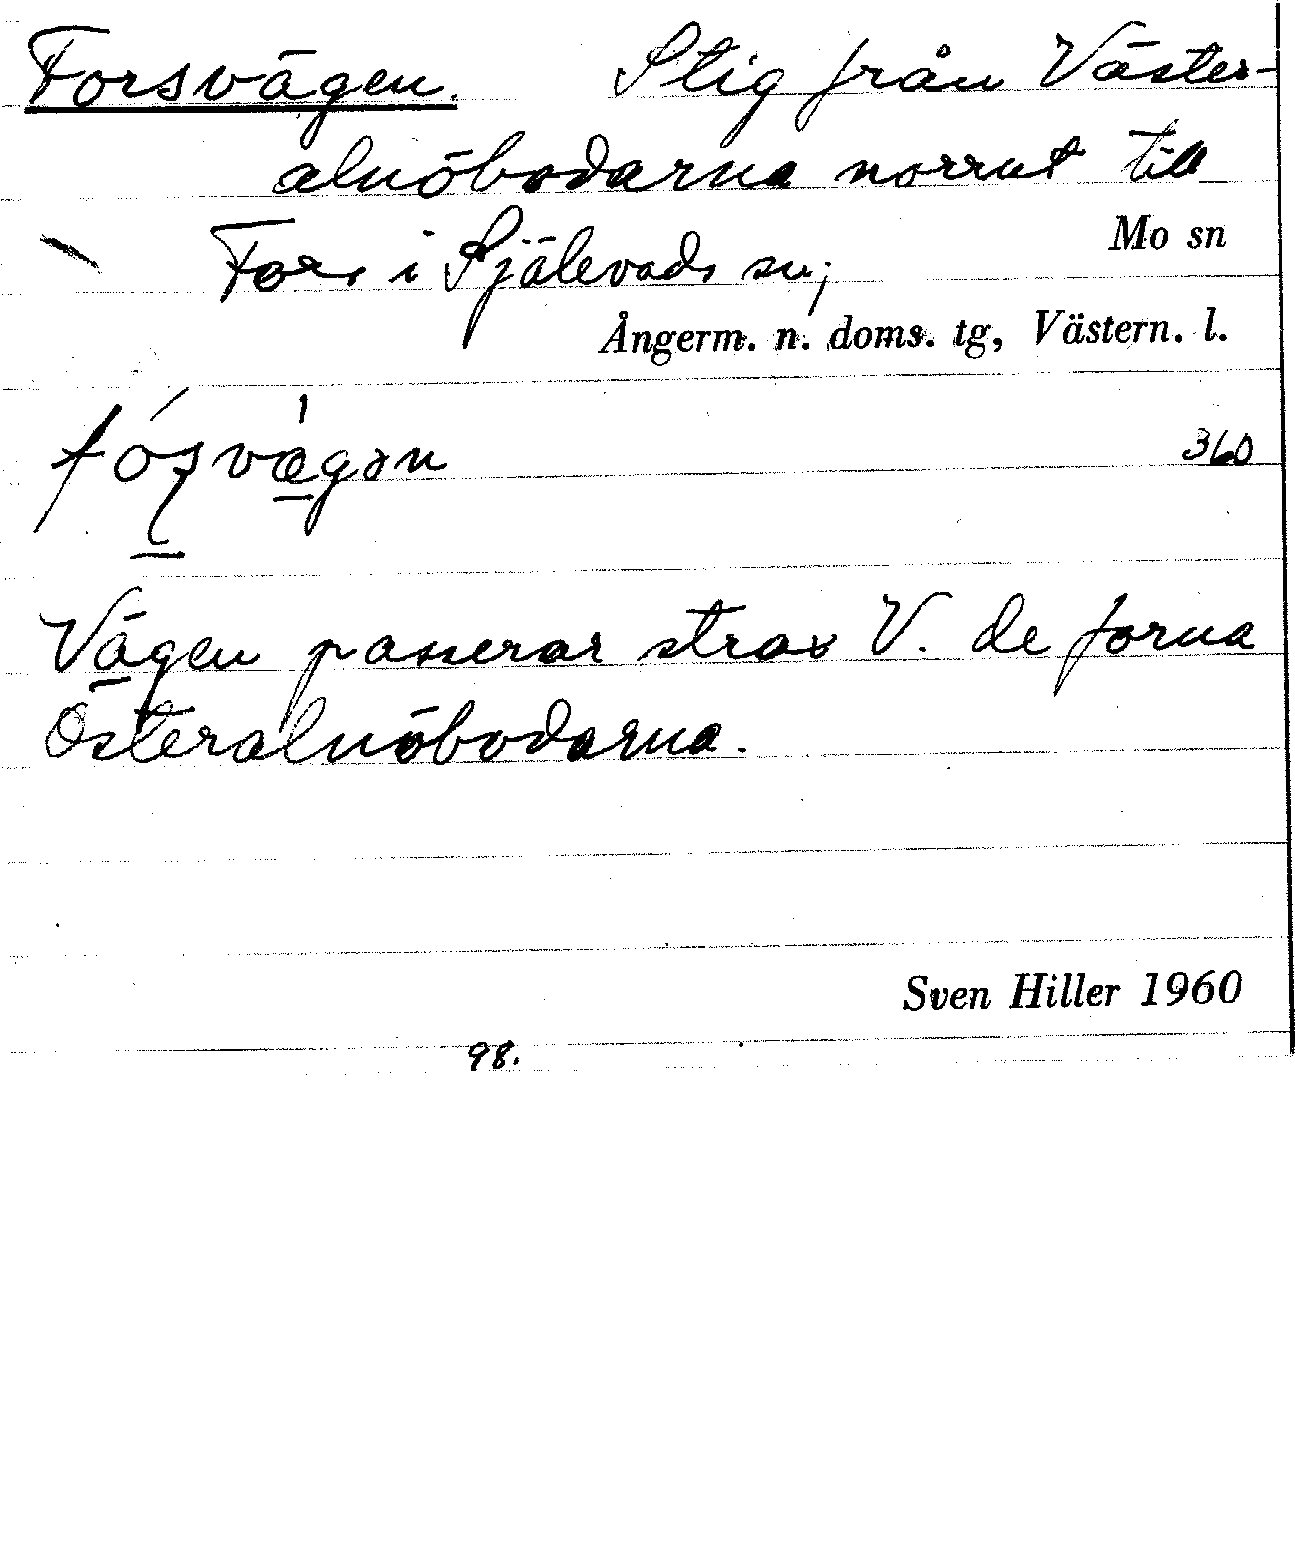 Forsvägen. Stig från Väster-
alnöbodarna norrut till
Mo sn
Fors i Själevads sn;
Ångerm. n. doms. tg, Västern. l.
360
Vägen passerar strax V. de forna
Österalnöbodarna.
Sven Hiller 1960
98.